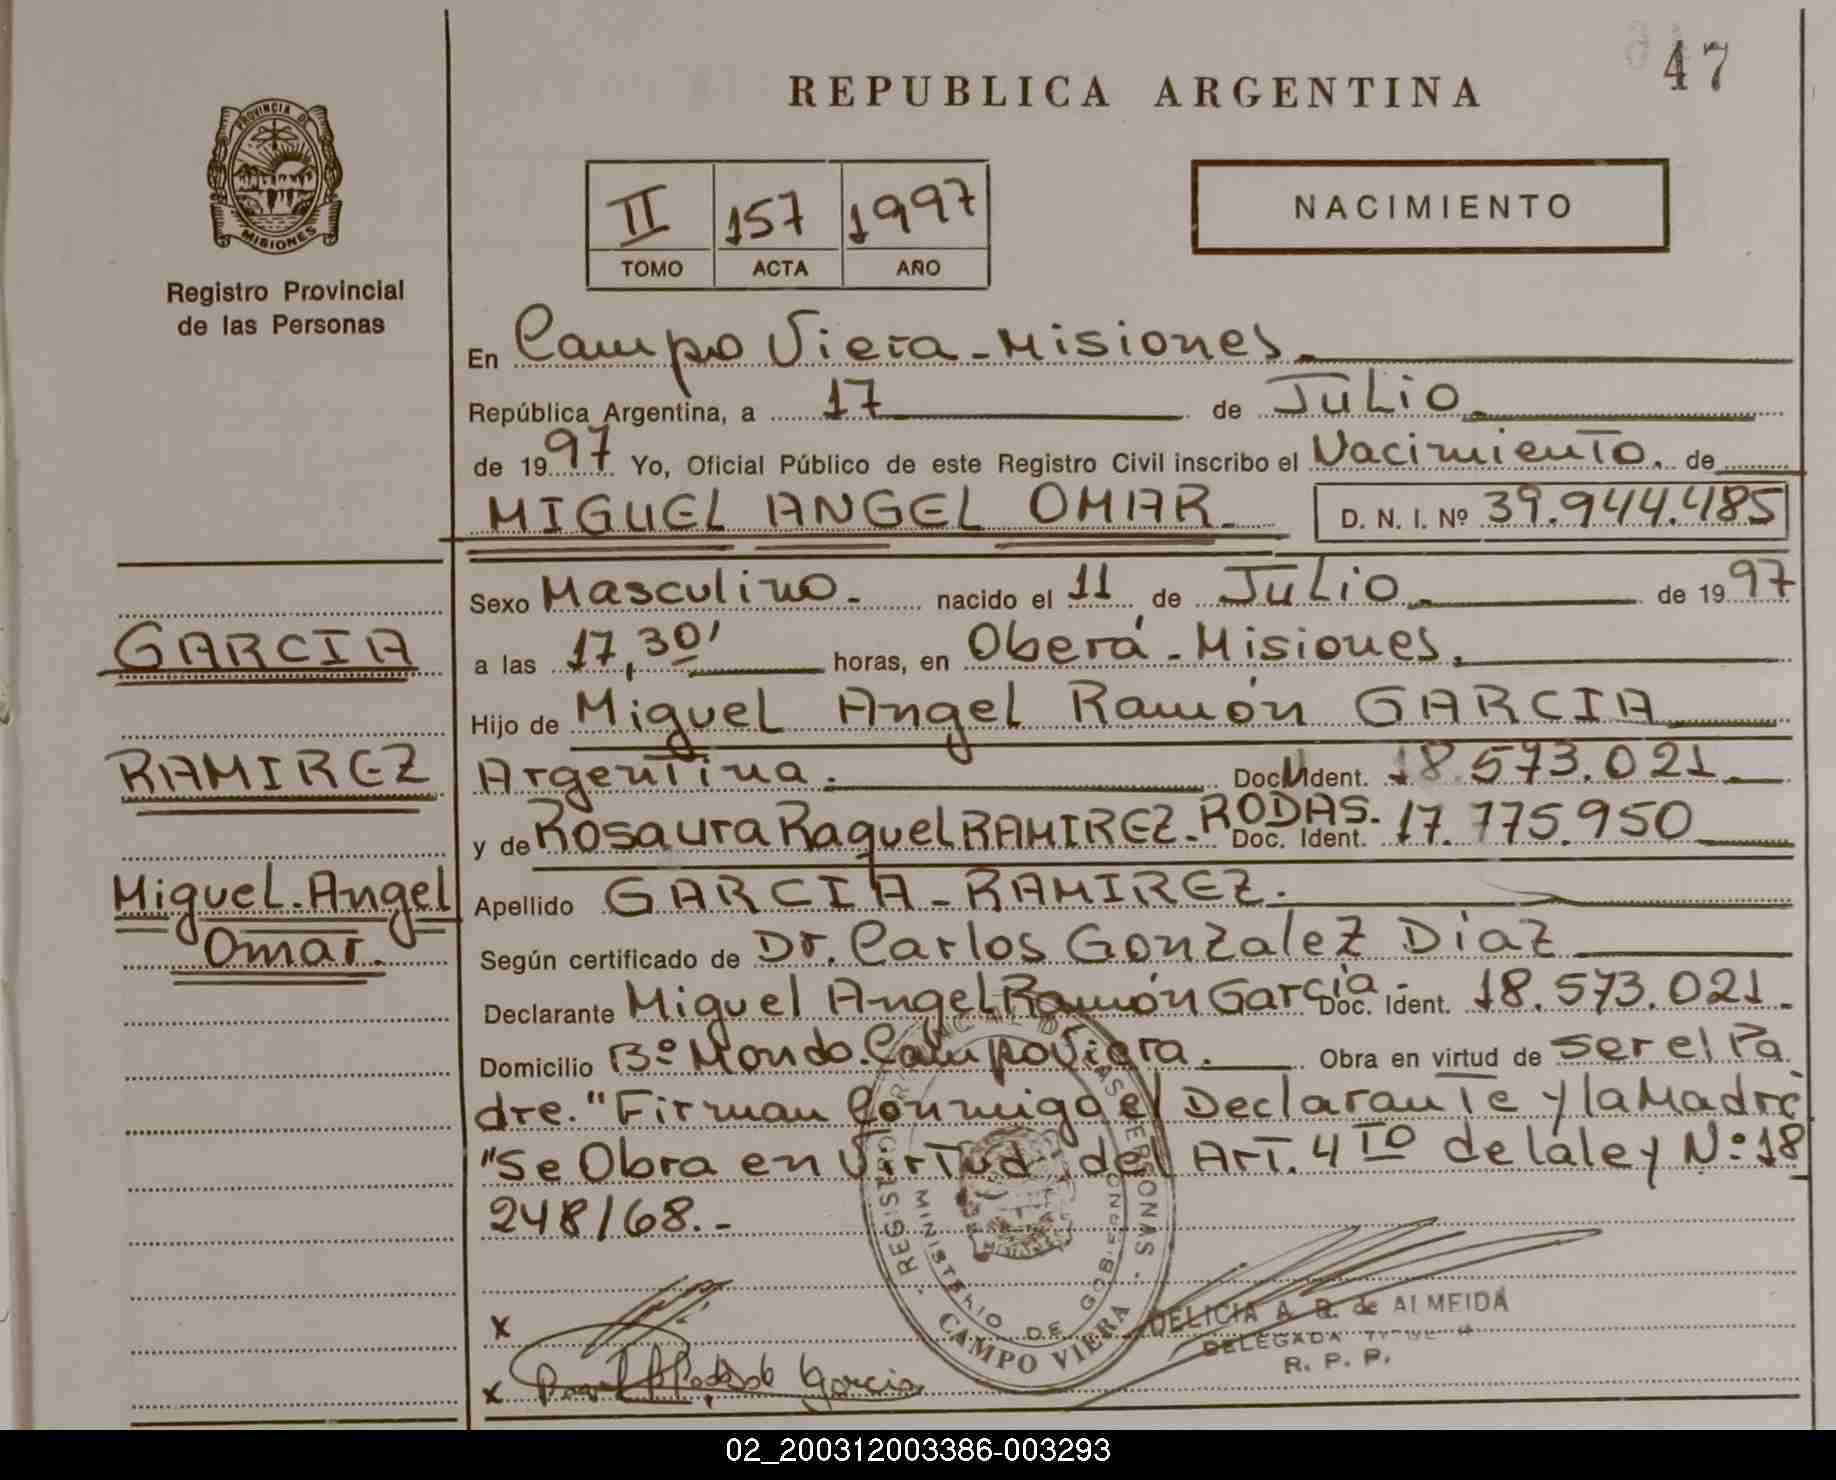 47
REPUBLICA ARGENTINA
PROVINCIA DE
MISIONES
Registro Provincial
de las Personas
II 157 1997
TOMO ACTA AÑO
NACIMIENTO
En Campo Viera - Misiones.
República Argentina, a 17 de Julio.
de 1997 Yo, Oficial Público de este Registro Civil inscribo el Nacimiento. de
MIGUEL ANGEL OMAR. D. N. I. Nº 39.944.485
Sexo Masculino. nacido el 11 de Julio. de 1997
GARCIA
a las 17,30' horas, en Oberá - Misiones.
Hijo de Miguel Angel Ramón GARCIA
RAMIREZ
Argentina. Doc. Ident. 18.573.021.
y de Rosaura Raquel RAMIREZ - RODAS. Doc. Ident. 17.775.950
Miguel. Angel
Omar.
Apellido GARCIA - RAMIREZ.
Según certificado de Dr. Carlos Gonzalez Diaz
Declarante Miguel Angel Ramón García - Doc. Ident. 18.573.021.
Domicilio Bº Mondo. Campo Viera. Obra en virtud de ser el Pa
dre. "Firman Conmigo el Declarante y la Madre
"Se Obra en Virtud del Art. 4TO de la ley Nº 18
248/68.-
REGISTRO PROVINCIAL DE LAS PERSONAS
MINISTERIO DE GOBIERNO
CAMPO VIERA
x
DELICIA A. R. de ALMEIDA
DELEGADA
R. P. P.
x Garcia
02_200312003386-003293